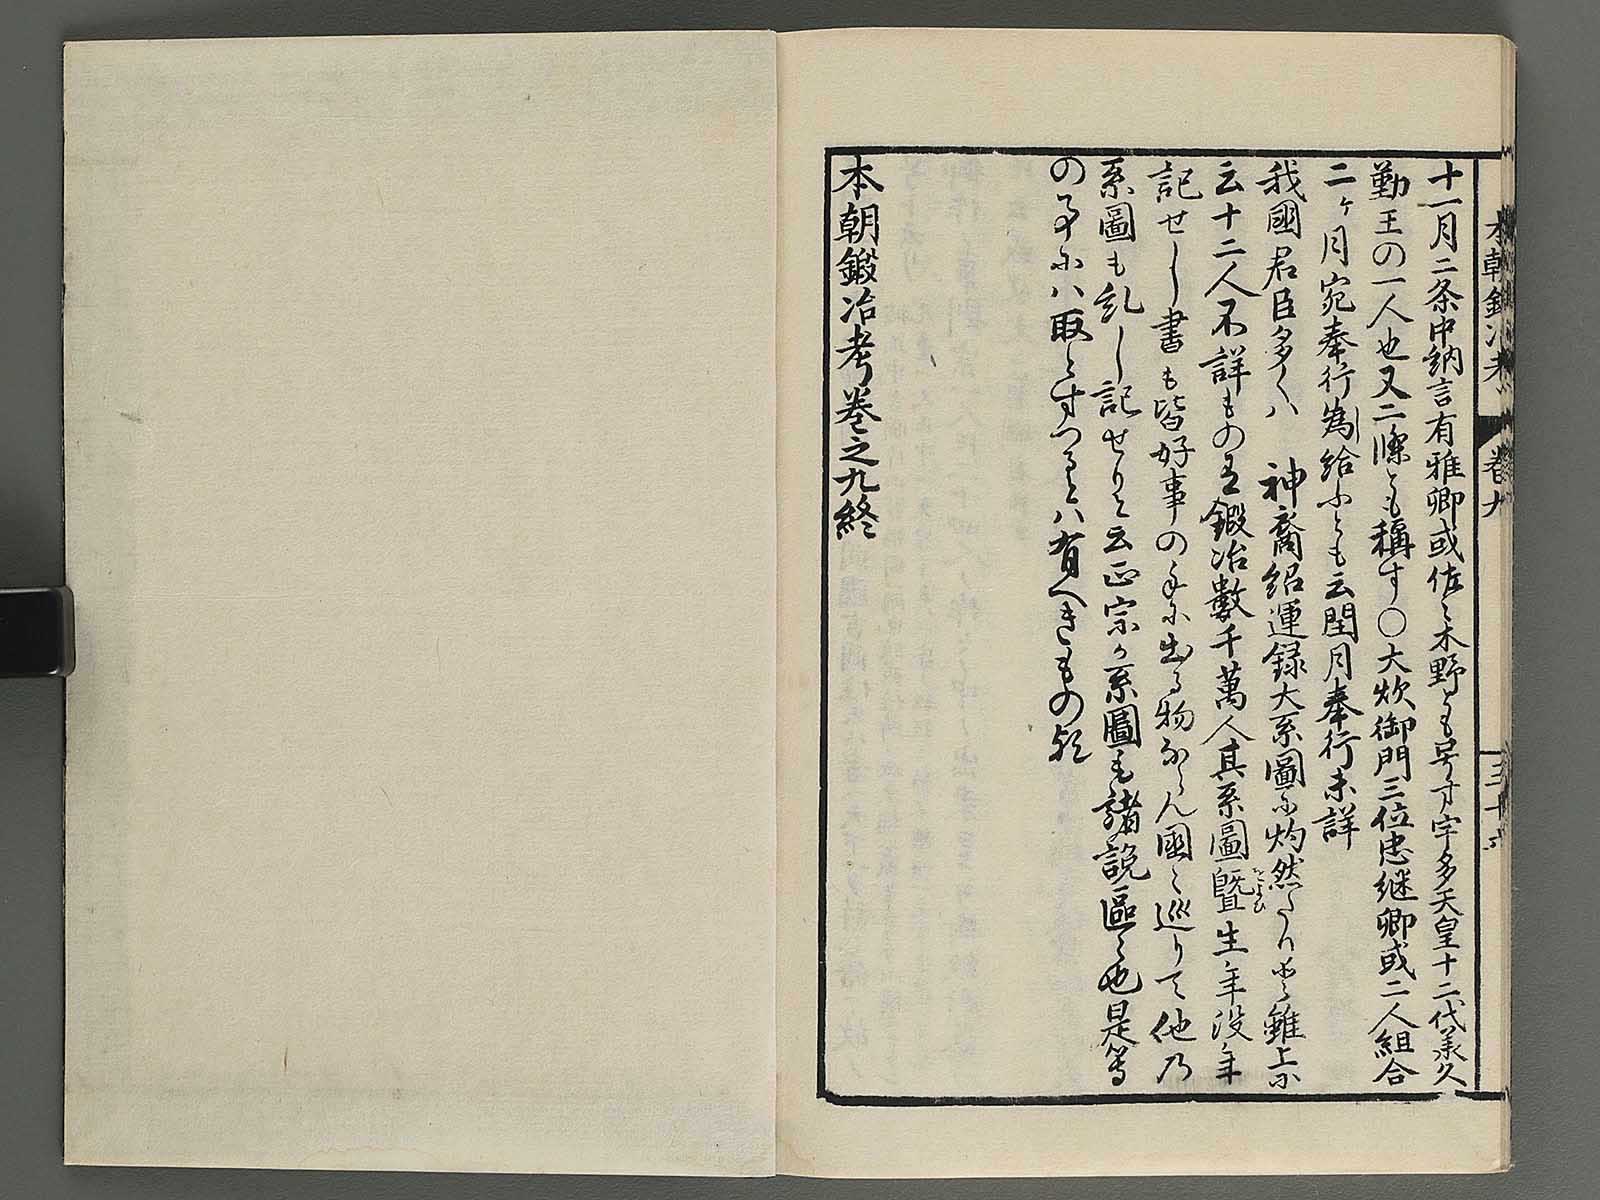 十一月二条中納言有雅卿或佐々木野とも号す宇多天皇十二代承久
勤王の一人也又二條とも稱す〇大炊御門三位忠継卿或二人組合
二ヶ月宛奉行為給ふとも云閏月奉行未詳
我國君臣多くハ　神裔紹運録大系圖に灼然たりと雖上に
云十二人不詳もの有鍛冶數千萬人其系圖曁生年没年
記せし書も皆好事の手に出る物ならん國々巡りて他乃
系圖も乱し記せりと云正宗か系圖も諸説區々也是等
の事にハ取とすつるとハ有へきもの欤
本朝鍛冶考巻之九終
本朝鍛冶考　巻九　三十